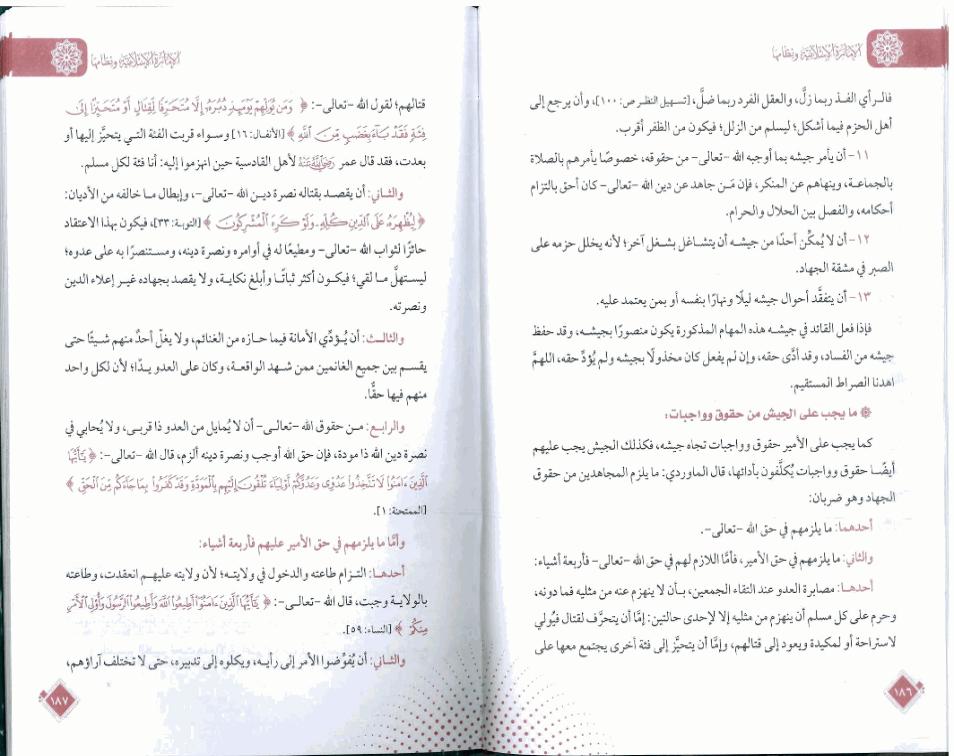 الإمارة الإسلامية ونظامها
فالـرأي الفـذ ربما زلَّ، والعقل الفرد ربما ضلَّ، [تسهيل النظر ص: ١٠٠]، وأن يرجع إلى
أهل الحزم فيما أشكل؛ ليسلم من الزلل؛ فيكون من الظفر أقرب.
١١- أن يأمر جيشه بما أوجبه الله -تعالى- من حقوقه، خصوصًا يأمرهم بالصلاة
بالجماعـة، وينهاهم عن المنكر، فإن مَـن جاهد عن دين الله -تعالى- كان أحق بالتزام
أحكامه، والفصل بين الحلال والحرام.
١٢- أن لا يُمكِّن أحدًا من جيشـه أن يتشـاغل بشـغل آخر؛ لأنه يخلل حزمه على
الصبر في مشقة الجهاد.
١٣- أن يتفقَّد أحوال جيشه ليلًا ونهارًا بنفسه أو بمن يعتمد عليه.
فإذا فعل القائد في جيشـه هذه المهام المذكورة يكون منصورًا بجيشـه، وقد حفظ
جيشه من الفساد، وقد أدَّى حقه، وإن لم يفعل كان مخذولًا بجيشه ولم يُؤدِّ حقه، اللهمَّ
اهدنا الصراط المستقيم.
ما يجب على الجيش من حقوق وواجبات:
كما يجب على الأمير حقوق وواجبات تجاه جيشه، فكذلك الجيش يجب عليهم
أيضًـا حقوق وواجبات يُكلَّفون بأدائها، قال الماوردي: ما يلزم المجاهدين من حقوق
الجهاد وهو ضربان:
أحدهما: ما يلزمهم في حق الله -تعالى-.
والثاني: ما يلزمهم في حق الأمير، فأمَّا اللازم لهم في حق الله -تعالى- فأربعة أشياء:
أحدهـا: مصابرة العدو عند التقاء الجمعين، بـأن لا ينهزم عنه من مثليه فما دونه،
وحرم على كل مسلم أن ينهزم من مثليه إلا لإحدى حالتين: إمَّا أن يتحرَّف لقتال فيُولي
لاستراحة أو لمكيدة ويعود إلى قتالهم، وإمَّا أن يتحيَّز إلى فئة أخرى يجتمع معها على
١٨٦
الإمارة الإسلامية ونظامها
قتالهم؛ لقول الله -تعالى-: ﴿ وَمَن يُوَلِّهِمْ يَوْمَئِذٍ دُبُرَهُۥٓ إِلَّا مُتَحَرِّفًا لِّقِتَالٍ أَوْ مُتَحَيِّزًا إِلَىٰ
فِئَةٍ فَقَدْ بَآءَ بِغَضَبٍ مِّنَ ٱللَّهِ ﴾ [الأنفال: ١٦] وسـواء قربت الفئة التـي يتحيَّز إليها أو
بعدت، فقد قال عمر رَضِيَ اللَّهُ عَنْهُ لأهل القادسية حين انهزموا إليه: أنا فئة لكل مسلم.
والثـاني: أن يقصـد بقتاله نصرة ديـن الله -تعالى-، وإبطال مـا خالفه من الأديان:
﴿ لِيُظْهِرَهُۥ عَلَى ٱلدِّينِ كُلِّهِۦ وَلَوْ كَرِهَ ٱلْمُشْرِكُونَ ﴾ [التوبـة: ٣٣]، فيكون بهذا الاعتقاد
حائزًا لثواب الله -تعالى- ومطيعًا له في أوامره ونصرة دينه، ومستنصرًا به على عدوه؛
ليستهلَّ مـا لقي؛ فيكون أكثر ثباتًـا وأبلغ نكايـة، ولا يقصد بجهاده غيـر إعلاء الدين
ونصرته.
والثالـث: أن يُـؤدِّي الأمانة فيما حـازه من الغنائم، ولا يغلّ أحدٌ منهم شـيئًا حتى
يقسـم بين جميع الغانمين ممن شـهد الواقعـة، وكان على العدو يـدًا؛ لأن لكل واحد
منهم فيها حقًّا.
والرابع: مـن حقوق الله -تعالـى- أن لا يُمايل من العدو ذا قربـى، ولا يُحابي في
نصرة دين الله ذا مودة، فإن حق الله أوجب ونصرة دينه ألزم، قال الله -تعالى-: ﴿ يَٰٓأَيُّهَا
ٱلَّذِينَ ءَامَنُوا۟ لَا تَتَّخِذُوا۟ عَدُوِّى وَعَدُوَّكُمْ أَوْلِيَآءَ تُلْقُونَ إِلَيْهِم بِٱلْمَوَدَّةِ وَقَدْ كَفَرُوا۟ بِمَا جَآءَكُم مِّنَ ٱلْحَقِّ ﴾
[الممتحنة: ١].
وأمَّا ما يلزمهم في حق الأمير عليهم فأربعة أشياء:
أحدهـا: التـزام طاعته والدخول في ولايتـه؛ لأن ولايته عليهـم انعقدت، وطاعته
بالولايـة وجبت، قال الله -تعالـى-: ﴿ يَٰٓأَيُّهَا ٱلَّذِينَ ءَامَنُوٓا۟ أَطِيعُوا۟ ٱللَّهَ وَأَطِيعُوا۟ ٱلرَّسُولَ وَأُو۟لِى ٱلْأَمْرِ
مِنكُمْ ﴾ [النساء: ٥٩].
والثـاني: أن يُفوِّضـوا الأمر إلى رأيـه، ويكلوه إلى تدبيره، حتى لا تختلف آراؤهم،
١٨٧